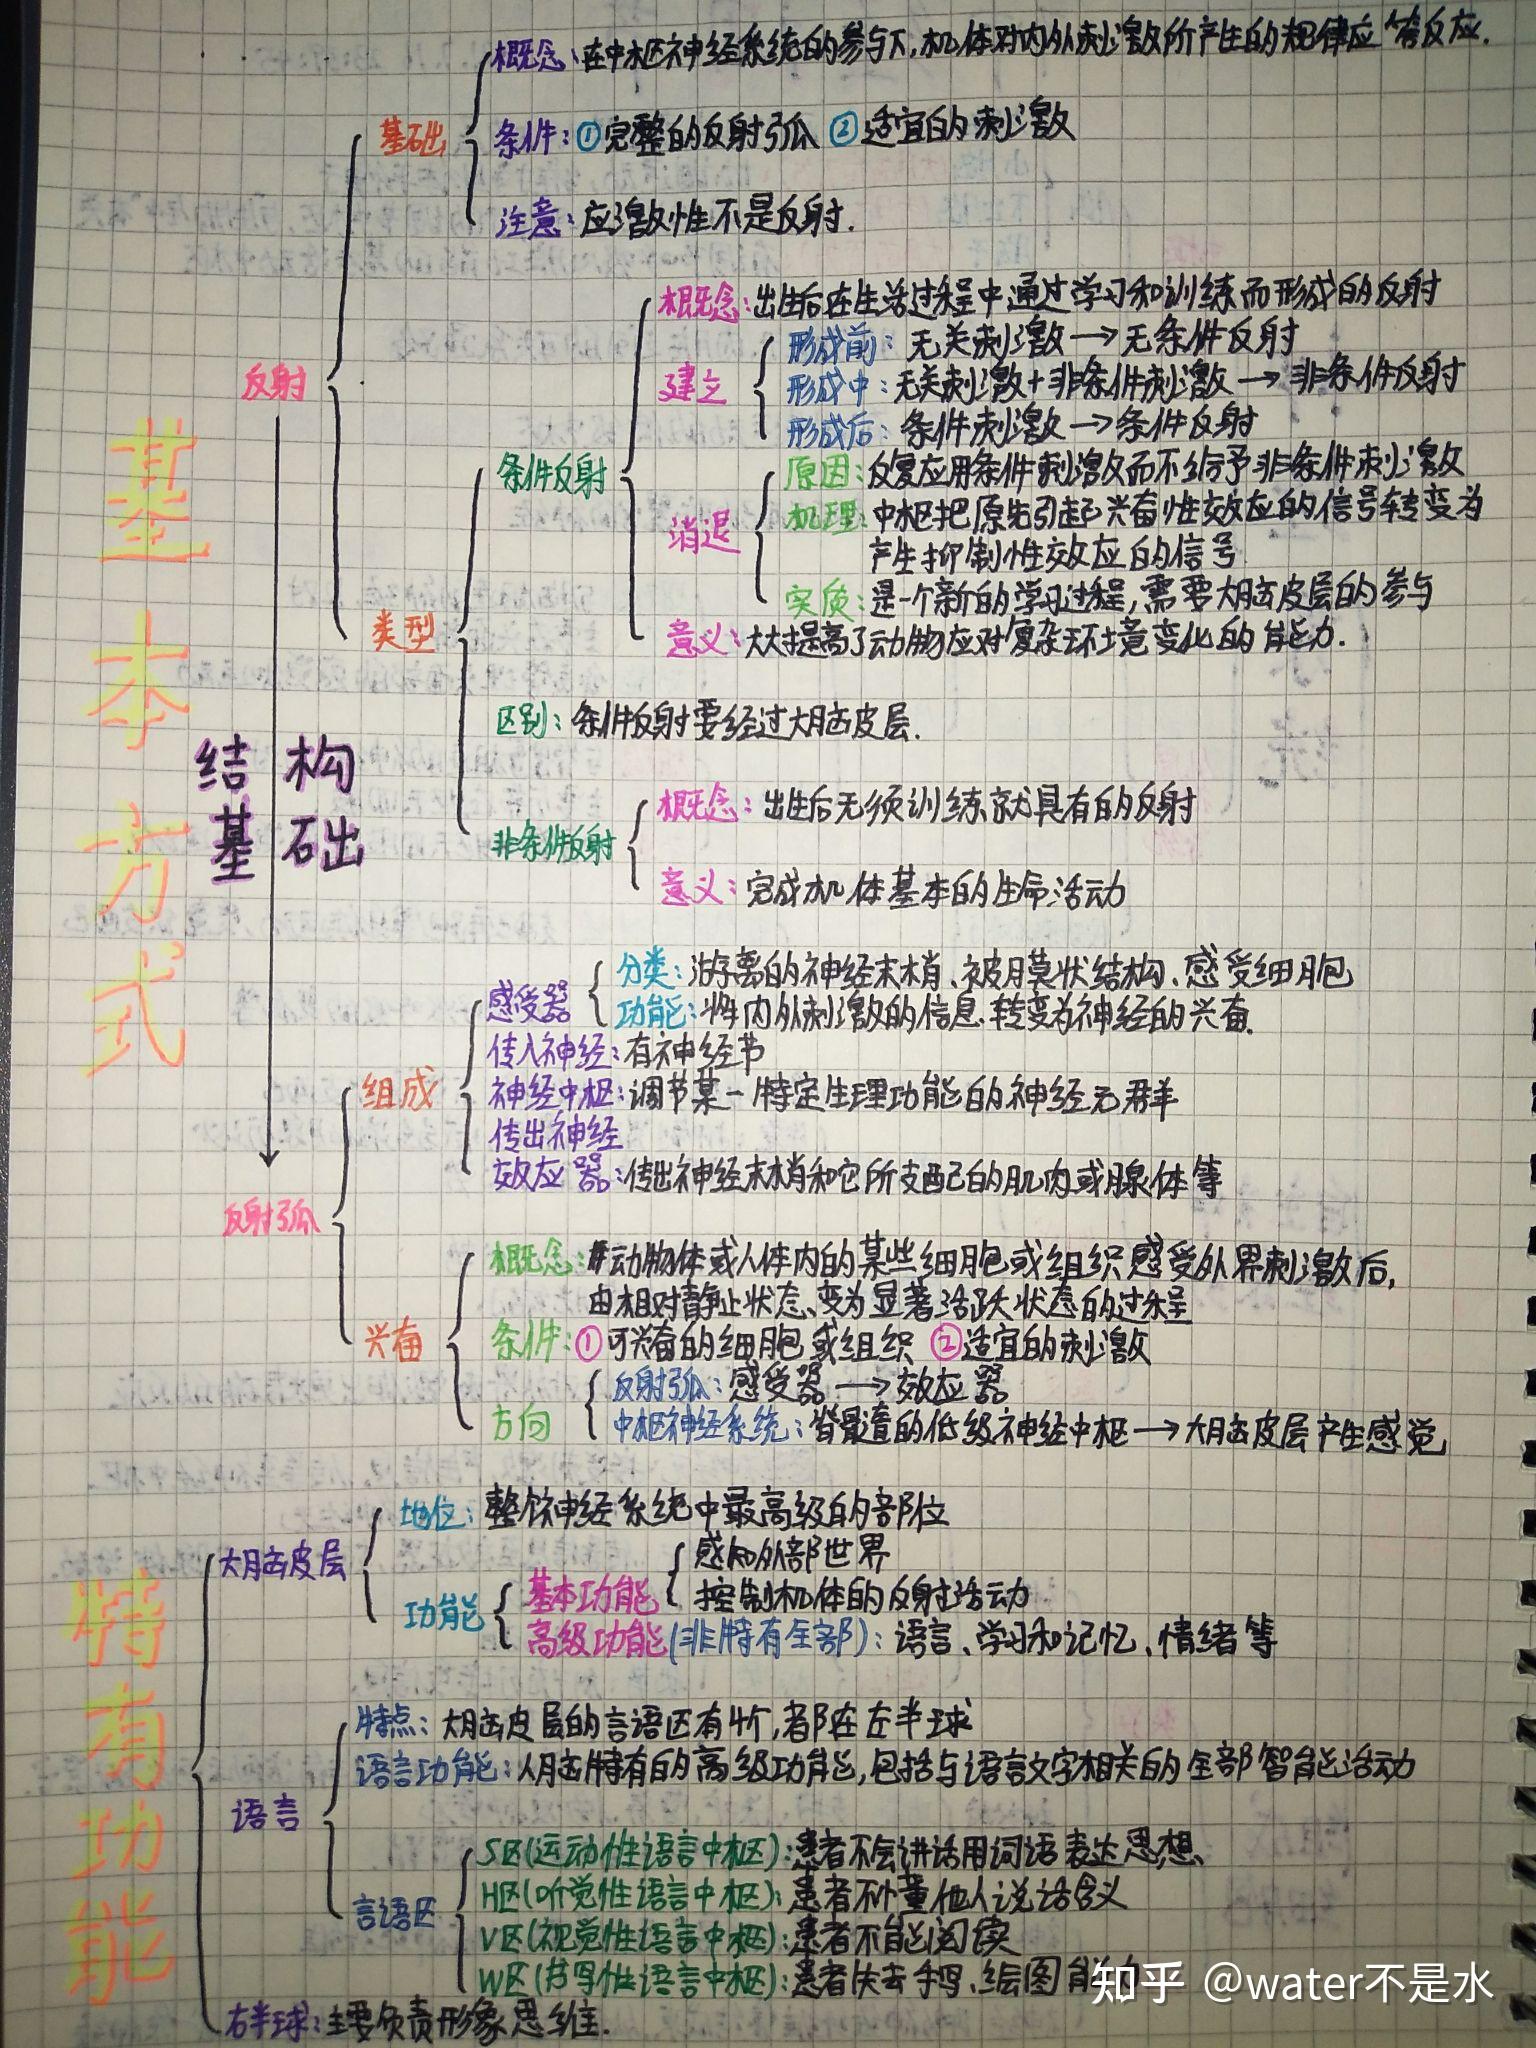 概念:在中枢神经系统的参与下,机体对内外刺激所产生的规律应答反应.
基础
条件:①完整的反射弧 ②适宜的刺激
注意:应激性不是反射.
概念:出生后在生活过程中通过学习和训练而形成的反射
形成前:无关刺激→无条件反射
反射
建立
形成中:无关刺激+非条件刺激→非条件反射
形成后:条件刺激→条件反射
条件反射
原因:反复应用条件刺激而不给予非条件刺激
机理:中枢把原先引起兴奋性效应的信号转变为
消退
产生抑制性效应的信号
实质:是一个新的学习过程,需要大脑皮层的参与
类型
意义:大大提高了动物应对复杂环境变化的能力.
区别:条件反射要经过大脑皮层.
结构
基础
概念:出生后无须训练就具有的反射
非条件反射
意义:完成机体基本的生命活动
基本方式
分类:游离的神经末梢、被膜状结构、感受细胞
感受器
功能:将内外刺激的信息转变为神经的兴奋.
传入神经:有神经节
组成
神经中枢:调节某一特定生理功能的神经元群
传出神经
效应器:传出神经末梢和它所支配的肌肉或腺体等
反射弧
概念:动物体或人体内的某些细胞或组织感受外界刺激后,
由相对静止状态变为显著活跃状态的过程
兴奋
条件:①可兴奋的细胞或组织 ②适宜的刺激
反射弧:感受器→效应器
方向
中枢神经系统:脊髓的低级神经中枢→大脑皮层产生感觉
地位:整个神经系统中最高级的部位
大脑皮层
感知外部世界
基本功能
控制机体的反射活动
功能
高级功能(非特有全部):语言、学习和记忆、情绪等
特有功能
特点:大脑皮层的言语区有4个,都在左半球
语言功能:人脑特有的高级功能,包括与语言文字相关的全部智能活动
语言
S区(运动性语言中枢):患者不会讲话用词语表达思想
H区(听觉性语言中枢):患者不懂他人说话含义
言语区
V区(视觉性语言中枢):患者不能阅读
W区(书写性语言中枢):患者失去手写、绘图能
右半球:主要负责形象思维.
知乎 @water不是水